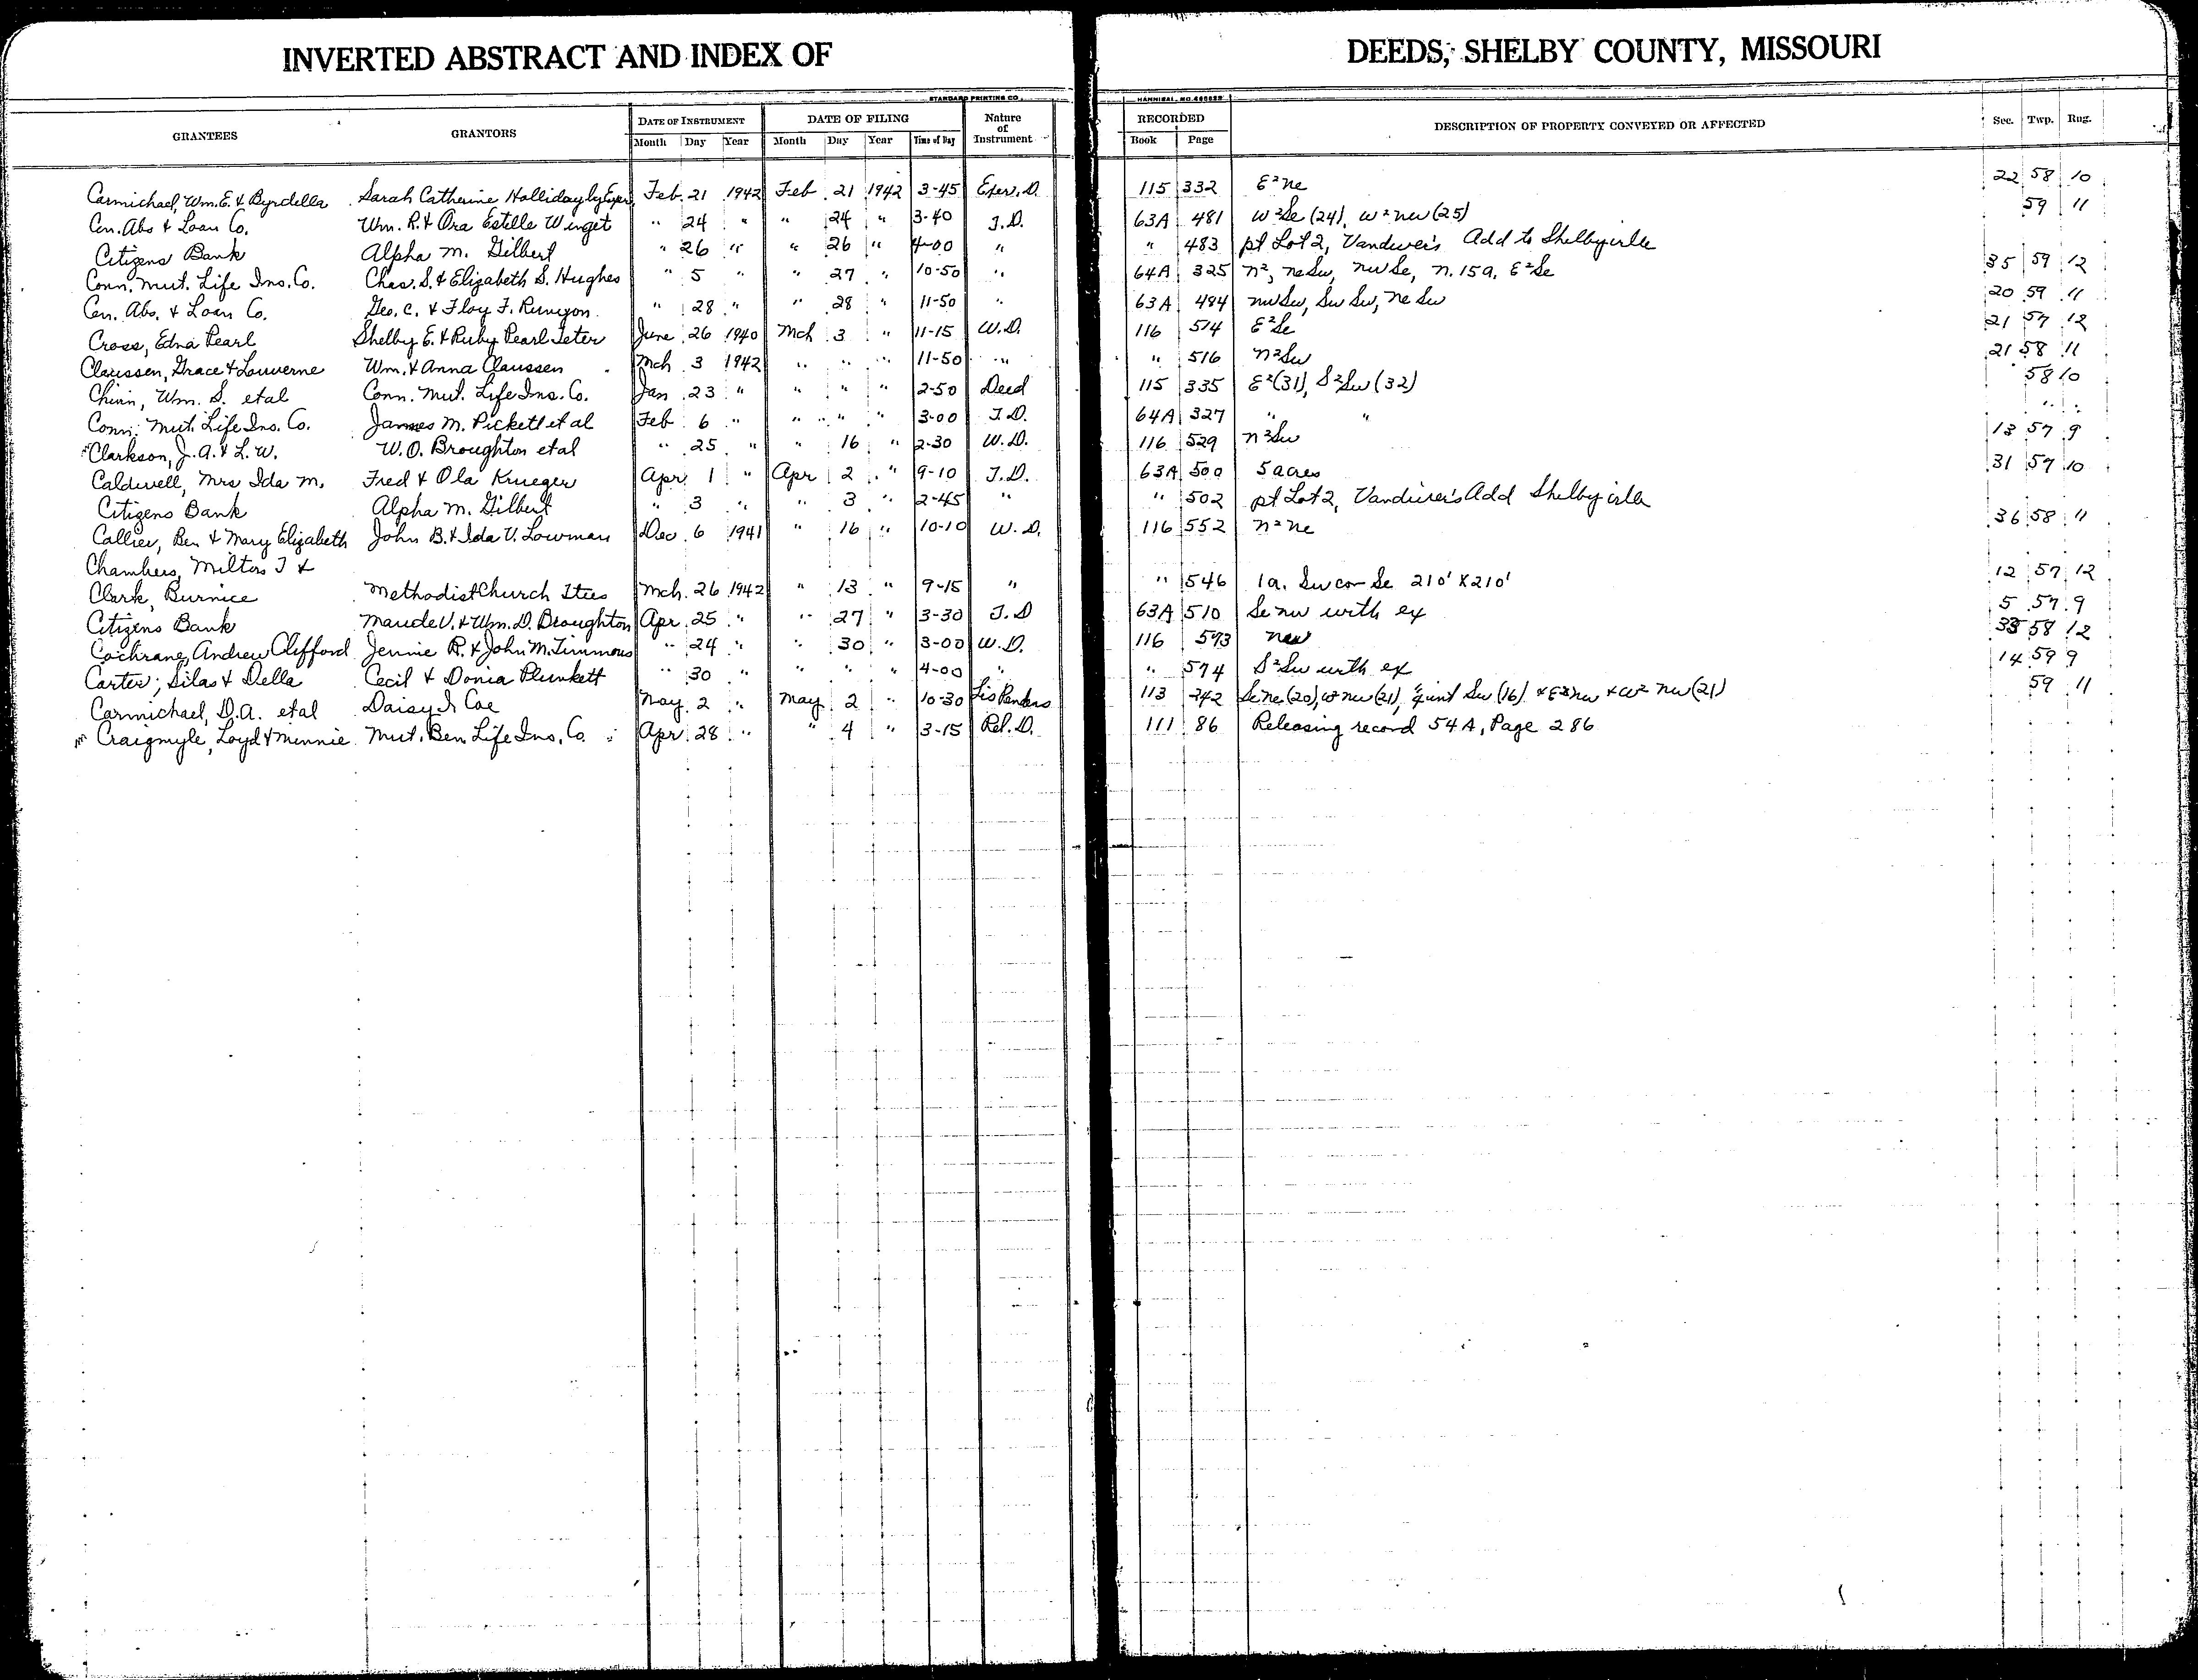 INVERTED ABSTRACT AND INDEX OF DEEDS, SHELBY COUNTY, MISSOURI
STANDARD PRINTING CO., HANNIBAL, MO.
GRANTEES GRANTORS DATE OF INSTRUMENT Month Day Year DATE OF FILING Month Day Year Time of Day Nature of Instrument RECORDED Book Page DESCRIPTION OF PROPERTY CONVEYED OR AFFECTED Sec. Twp. Rng.
Carmichael, Wm. E. & Byrdella Sarah Catherine Holliday by Exer. Feb. 21 1942 Feb 21 1942 3-45 Exer. D. 115 332 E²ne 22 58 10
Cen. Abs & Loan Co. Wm. R. & Ora Estelle Winget " 24 " " 24 " 3-40 T.D. 63A 481 W²Se (24), W²nw (25) 59 11
Citizens Bank Alpha M. Gilbert " 26 " " 26 " 4-00 " " 483 pt Lot 2, Vandiver's Add to Shelbyville
Conn. Mut. Life Ins. Co. Chas. S. & Elizabeth S. Hughes " 5 " " 27 " 10-50 " 64A 325 n², neSw, nwSe, n. 15a, E²Se 35 59 12
Cen. Abs. & Loan Co. Geo. C. & Floy F. Runyon " 28 " " 28 " 11-50 " 63A 484 nwSw, SwSw, neSw 20 59 11
Cross, Edna Pearl Shelby E. & Ruby Pearl Teter June 26 1940 Mch 3 " 11-15 W.D. 116 514 E²Se 21 57 12
Claussen, Grace & Louverne Wm. & Anna Claussen Mch 3 1942 " " " 11-50 " " 516 n²Sw 21 58 11
Chinn, Wm. S. etal Conn. Mut. Life Ins. Co. Jan 23 " " " " 2-50 Deed 115 335 E²(31), S²Sw (32) 58 10
Conn. Mut. Life Ins. Co. James M. Pickett et al Feb 6 " " " " 3-00 T.D. 64A 327 " " " "
Clarkson, J.A. & L.W. W.O. Broughton etal " 25 " " 16 " 2-30 W.D. 116 529 n²Sw 13 57 9
Caldwell, Mrs Ida M. Fred & Ola Krueger Apr 1 " Apr 2 " 9-10 T.D. 63A 500 5 acres 31 57 10
Citizens Bank Alpha M. Gilbert " 3 " " 3 " 2-45 " " 502 pt Lot 2, Vandiver's Add Shelbyville
Callier, Ben & Mary Elizabeth John B. & Ida V. Lowman Dec 6 1941 " 16 " 10-10 W.D. 116 552 n²ne 36 58 11
Chambers, Milton T &
Clark, Burnice Methodist Church Ttees Mch. 26 1942 " 13 " 9-15 " " 546 1a. Sw cor Se 210' X 210' 12 57 12
Citizens Bank Maude V. & Wm. D. Broughton Apr. 25 " " 27 " 3-30 T.D 63A 510 Se nw with ex 5 57 9
Cochrane, Andrew Clifford Jennie R. & John M. Timmons " 24 " " 30 " 3-00 W.D. 116 573 nw 35 58 12
Carter, Silas & Della Cecil & Donia Plunkett " 30 " " " " 4-00 " " 574 S²Sw with ex 14 59 9
Carmichael, D.A. etal Daisy I. Coe May 2 " May 2 " 10-30 Lis Pendens 113 242 Se ne (20), W²nw (21), Sw (16) & E²nw & W² nw (21) 59 11
Craigmyle, Loyd & Minnie Mut. Ben. Life Ins. Co. Apr 28 " " 4 " 3-15 Rel. D. 111 86 Releasing record 54A, Page 286